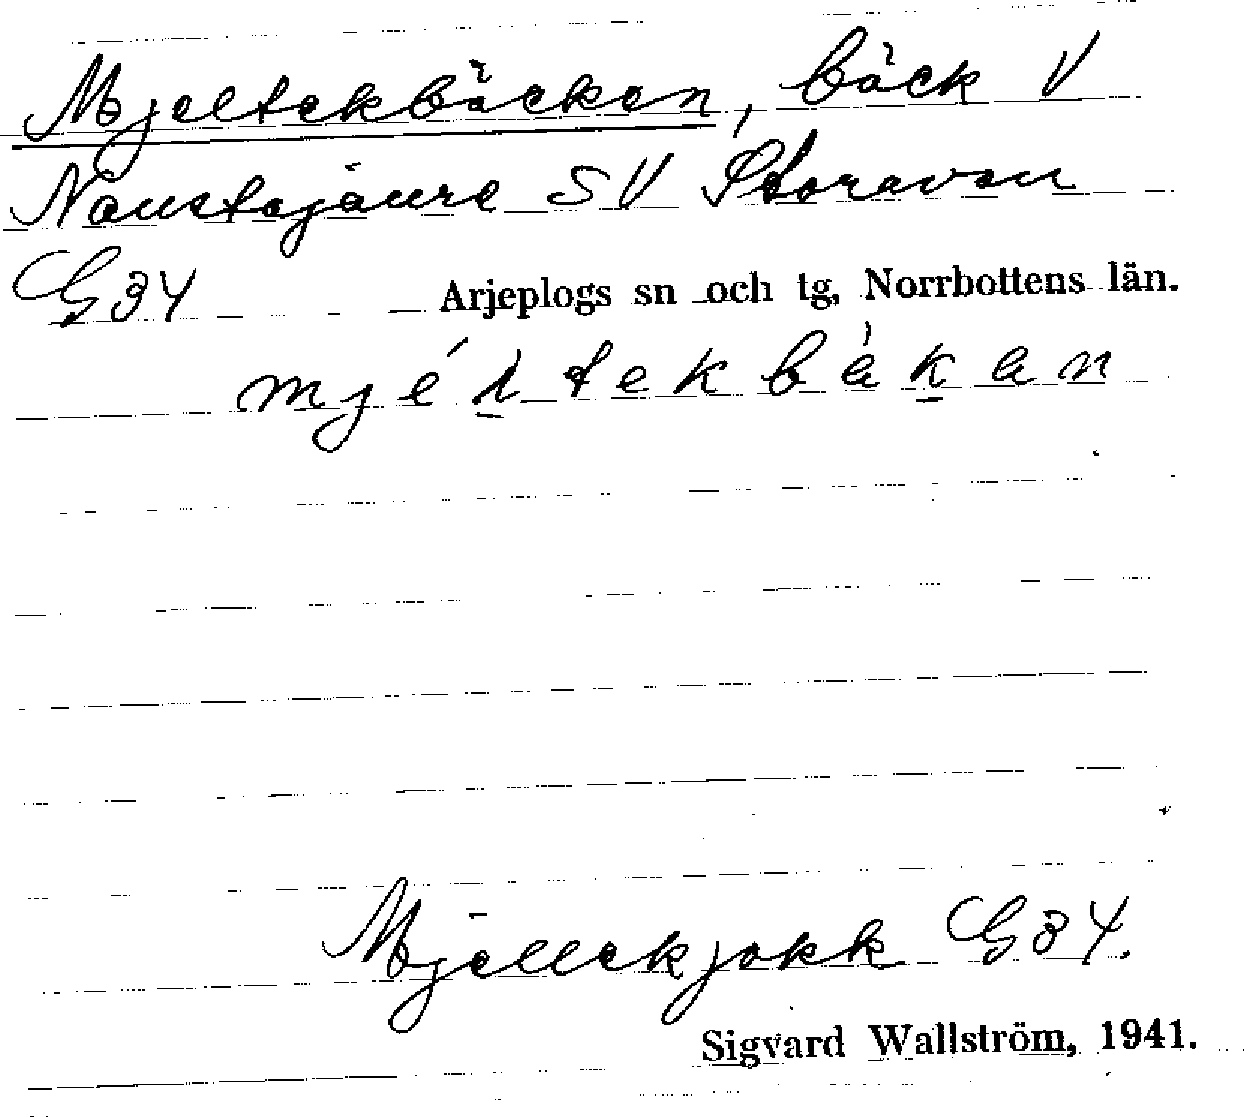 Mjeltekbäcken, bäck V
Naustajaure SV Storavan
G34 Arjeplogs sn och tg, Norrbottens län.
mjéltekbäkan
Mjällekjokk G34.
Sigvard Wallström, 1941.